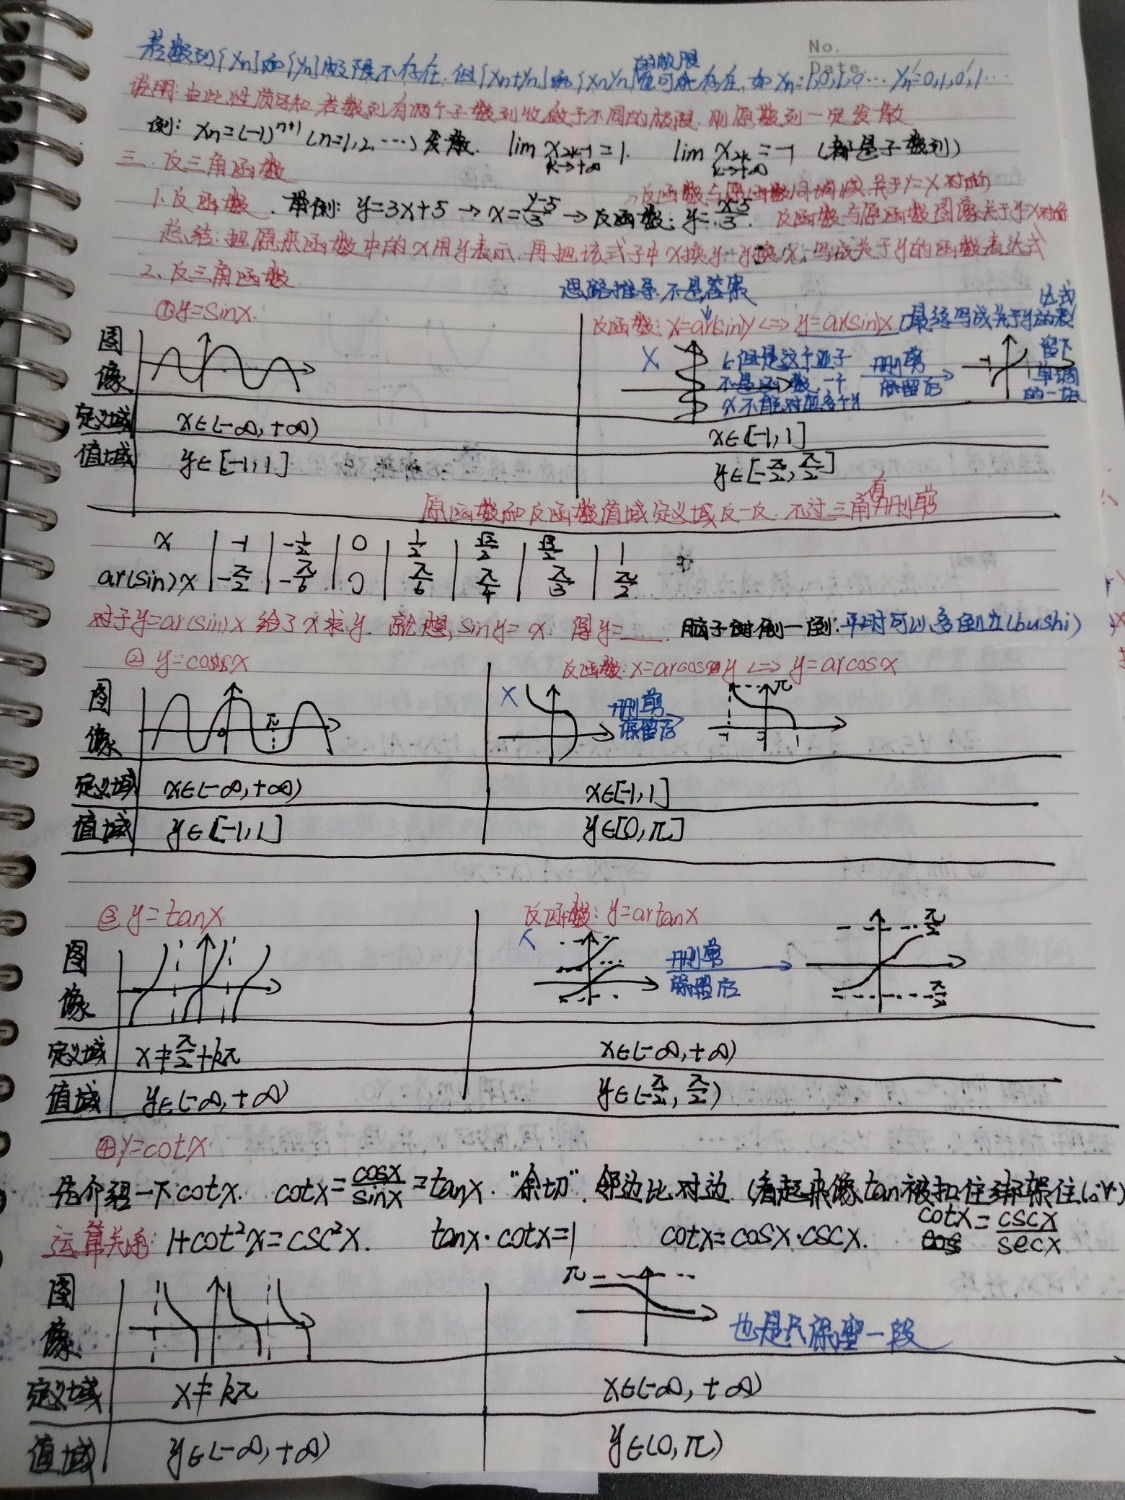 No.
Date
若数列{Xn}和{Yn}极限不存在,但{Xn+Yn}和{XnYn}的极限是可能存在,如Xn=1,0,1,0… Yn=0,1,0,1…
说明:由此性质可知 若数列有两个子数列收敛于不同的极限,则原数列一定发散
例: Xn=(-1)^{n+1}(n=1,2,…)发散. lim_{k→+∞} X_{2k-1}=1. lim_{k→+∞} X_{2k}=-1 (都是子数列)
三. 反三角函数
→反函数与原函数同调减 关于y=X对称
1.反函数. 举例: y=3x+5→x=\frac{y-5}{3}→反函数: y=\frac{x-5}{3}. 反函数与原函数图像关于y=x对称
总结:把原来函数中的x用y表示,再把该式子中x换y,y换x,写成关于y的函数表达式
2.反三角函数
思路推导,不是答案
①y=sinx.
反函数: x=arsiny<=>y=arsinx 最终写成关于y的表达式
图像
X
但是这个亚子不是函数,一个x不能对应多个y
删剪
保留后
-1 1
留下单调的一段
定义域 x∈(-∞,+∞) x∈[-1,1]
值域 y∈[-1,1] y∈[-\frac{π}{2},\frac{π}{2}]
原函数和反函数值域定义域反一反,不过三角有删剪
x -1 -\frac{1}{2} 0 \frac{1}{2} \frac{√2}{2} \frac{√3}{2} 1
ar(sin)x -\frac{π}{2} -\frac{π}{6} 0 \frac{π}{6} \frac{π}{4} \frac{π}{3} \frac{π}{2}
对于y=ar(sin)x给了x求y,就想,siny=x. 得y=___. 脑子倒一倒:平时可以多倒立(bushi)
② y=cosx 反函数:x=arcosy<=>y=arcosx
图像
π
X
删剪
保留后
π
-1 0 1
定义域 x∈(-∞,+∞) x∈[-1,1]
值域 y∈[-1,1] y∈[0,π]
③ y=tanx 反函数: y=artanx
图像
删剪
保留后
\frac{π}{2}
\frac{π}{2}
定义域 x≠\frac{π}{2}+kπ x∈(-∞,+∞)
值域 y∈(-∞,+∞) y∈(-\frac{π}{2},\frac{π}{2})
④y=cotx
先介绍一下cotx. cotx=\frac{cosx}{sinx}=tanx. "余切". 邻边比对边.(看起来像tan被扣住绑架住
运算关系: 1+cot²x=csc²x. tanx·cotx=1 cotx=cosx·cscx. cotx=\frac{cscx}{secx}
图像
π
也是只保留一段
定义域 x≠kπ x∈(-∞,+∞)
值域 y∈(-∞,+∞) y∈(0,π)